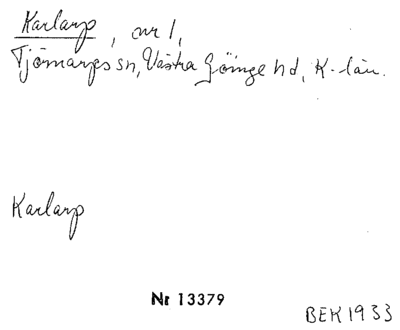 Karlarp, nr 1,
Tjörnarps sn, Västra Göinge hd, K-län.
Karlarp
Nr 13379
BEK 1933